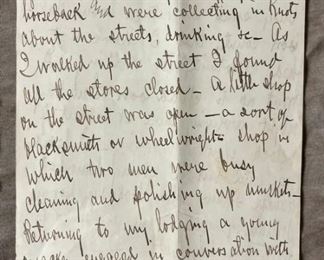 horseback and were collecting in knots
about the streets, drinking &c – As
I walked up the street I found
all the stores closed – A little shop
on the street was open – a sort of
blacksmith or wheelwrights shop in
which two men were busy
cleaning and polishing up muskets –
Returning to my lodging a young
engaged in conversation with